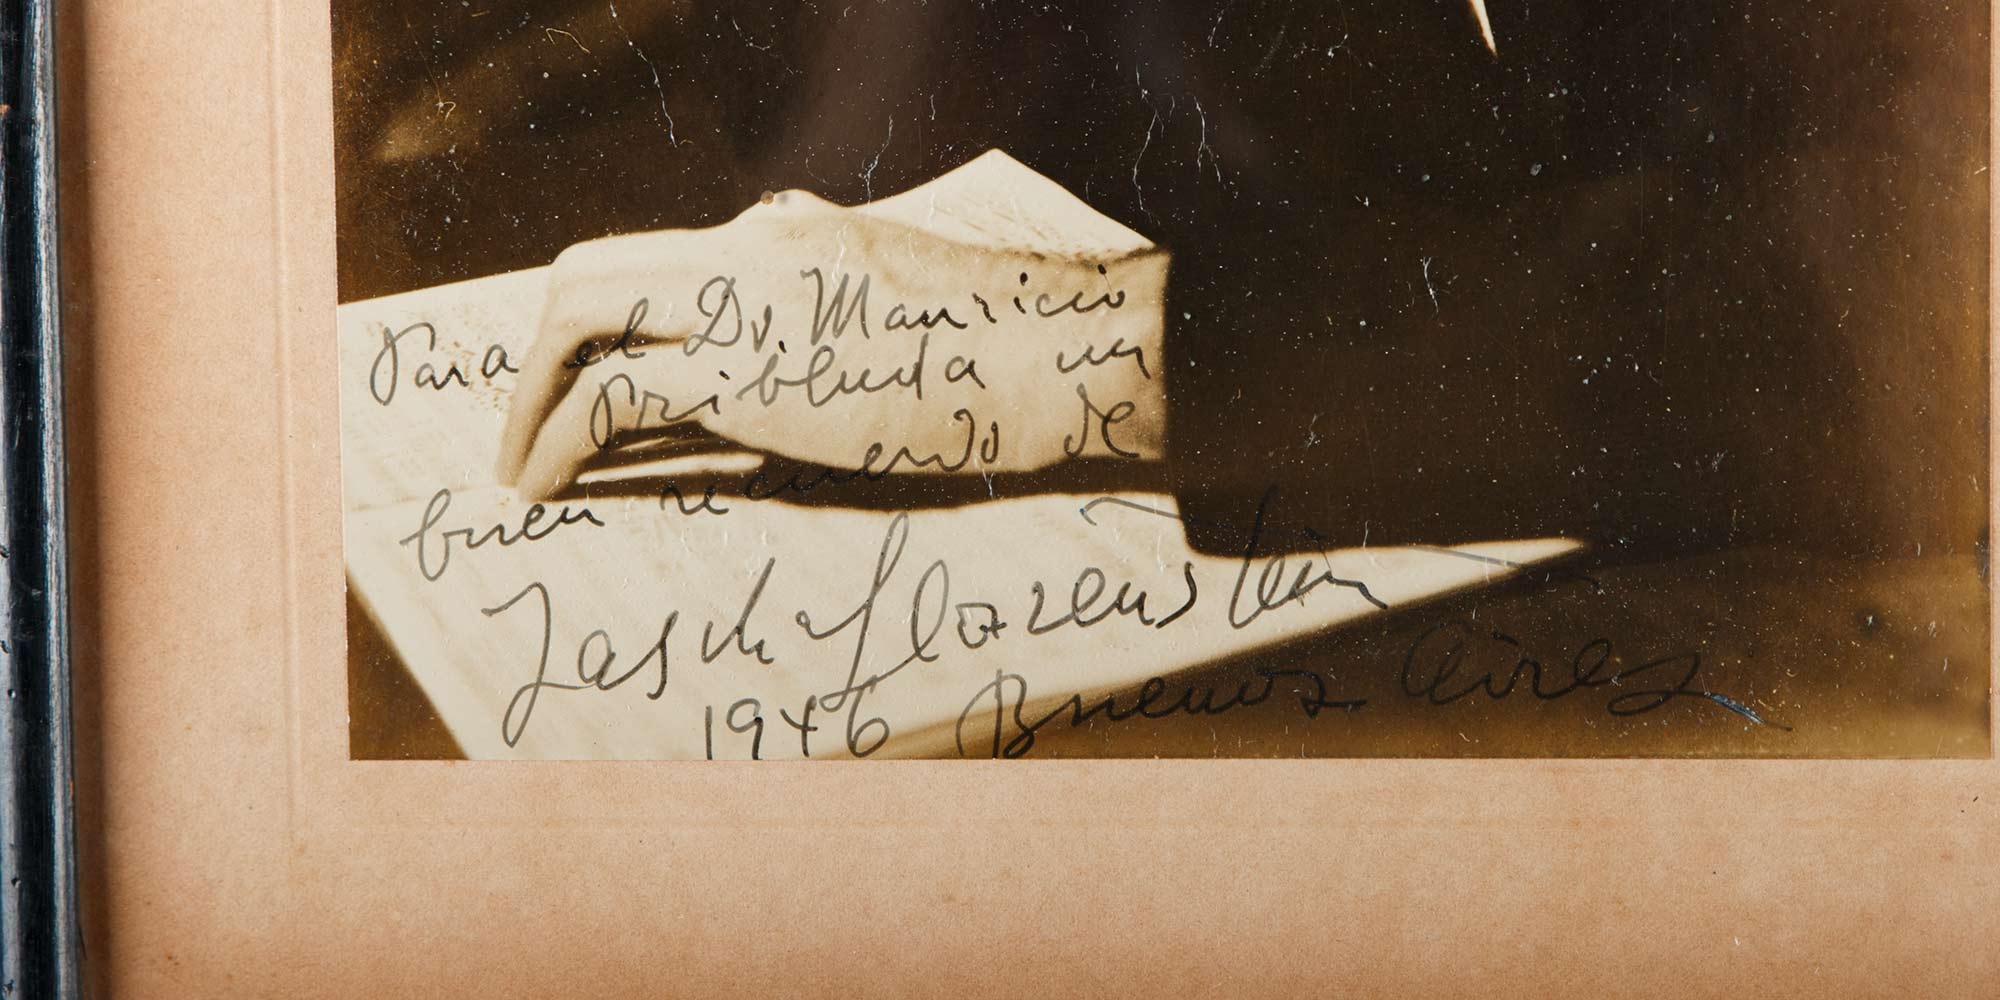 Para el Dr. Mauricio
Pribluda un
buen recuerdo de
Jascha Horenstein
1946 Buenos Aires